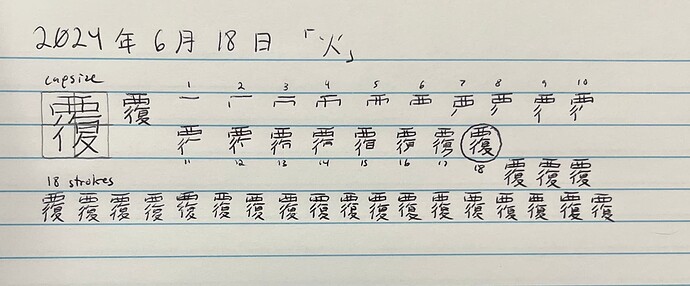 2024 年 6 月 18 日 「火」
capsize
覆 覆 1 2 3 4 5 6 7 8 9 10
覆
11 12 13 14 15 16 17 18
覆 覆 覆
18 strokes
覆 覆 覆 覆 覆 覆 覆 覆 覆 覆 覆 覆 覆 覆 覆 覆 覆